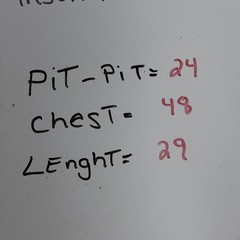 PiT-PiT= 24
ChesT= 48
LEnghT= 29